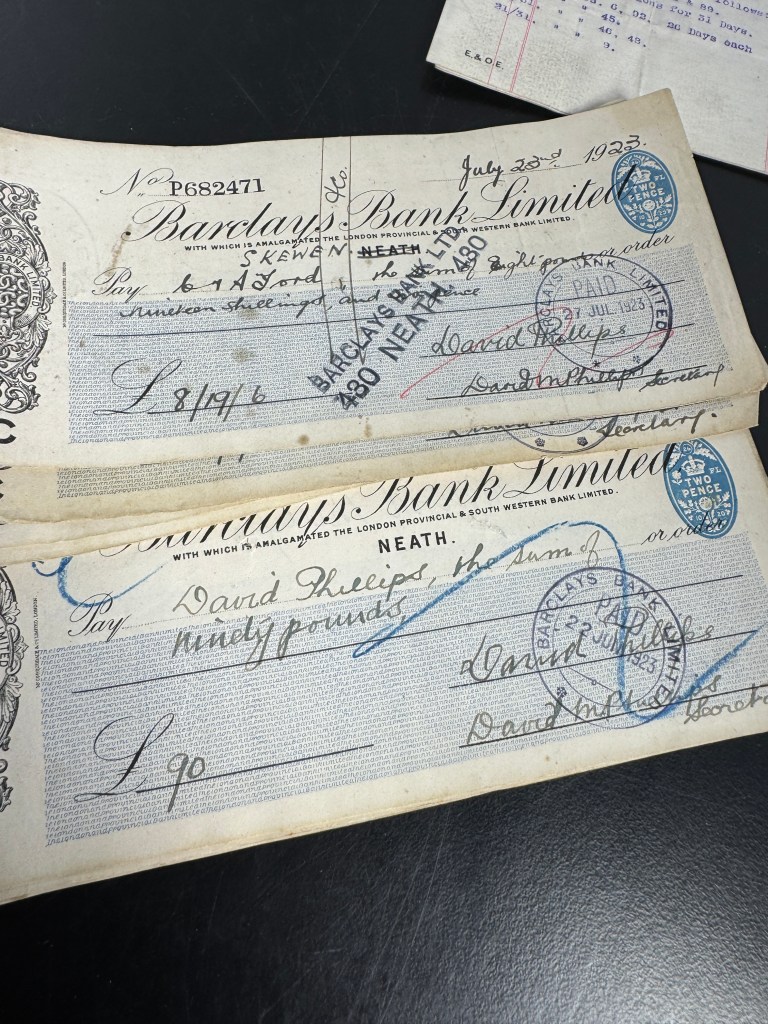 & 89.
follows:
ions for 31 Days.
31/31. " " 6. 92. 26 Days each
" " 45.
" " 46. 48.
" " 9.
E.& O.E.
July 23rd 1923.
No P682471
& Co.
Barclays Bank Limited
WITH WHICH IS AMALGAMATED THE LONDON PROVINCIAL & SOUTH WESTERN BANK LIMITED.
TWO PENCE
SKEWEN. NEATH
Pay C & A Ford, the sum of Eight pounds or order
nineteen shillings, and sixpence
BARCLAYS BANK LTD
430 NEATH 430
BARCLAYS BANK LIMITED
PAID
27 JUL 1923
David Phillips
£ 8/19/6
David M Phillips Secretary
Secretary.
Barclays Bank Limited
WITH WHICH IS AMALGAMATED THE LONDON PROVINCIAL & SOUTH WESTERN BANK LIMITED.
TWO PENCE
NEATH.
or order
Pay David Phillips, the sum of
ninety pounds,
BARCLAYS BANK LIMITED
PAID
David Phillips
£ 90
David M Phillips
Secretary